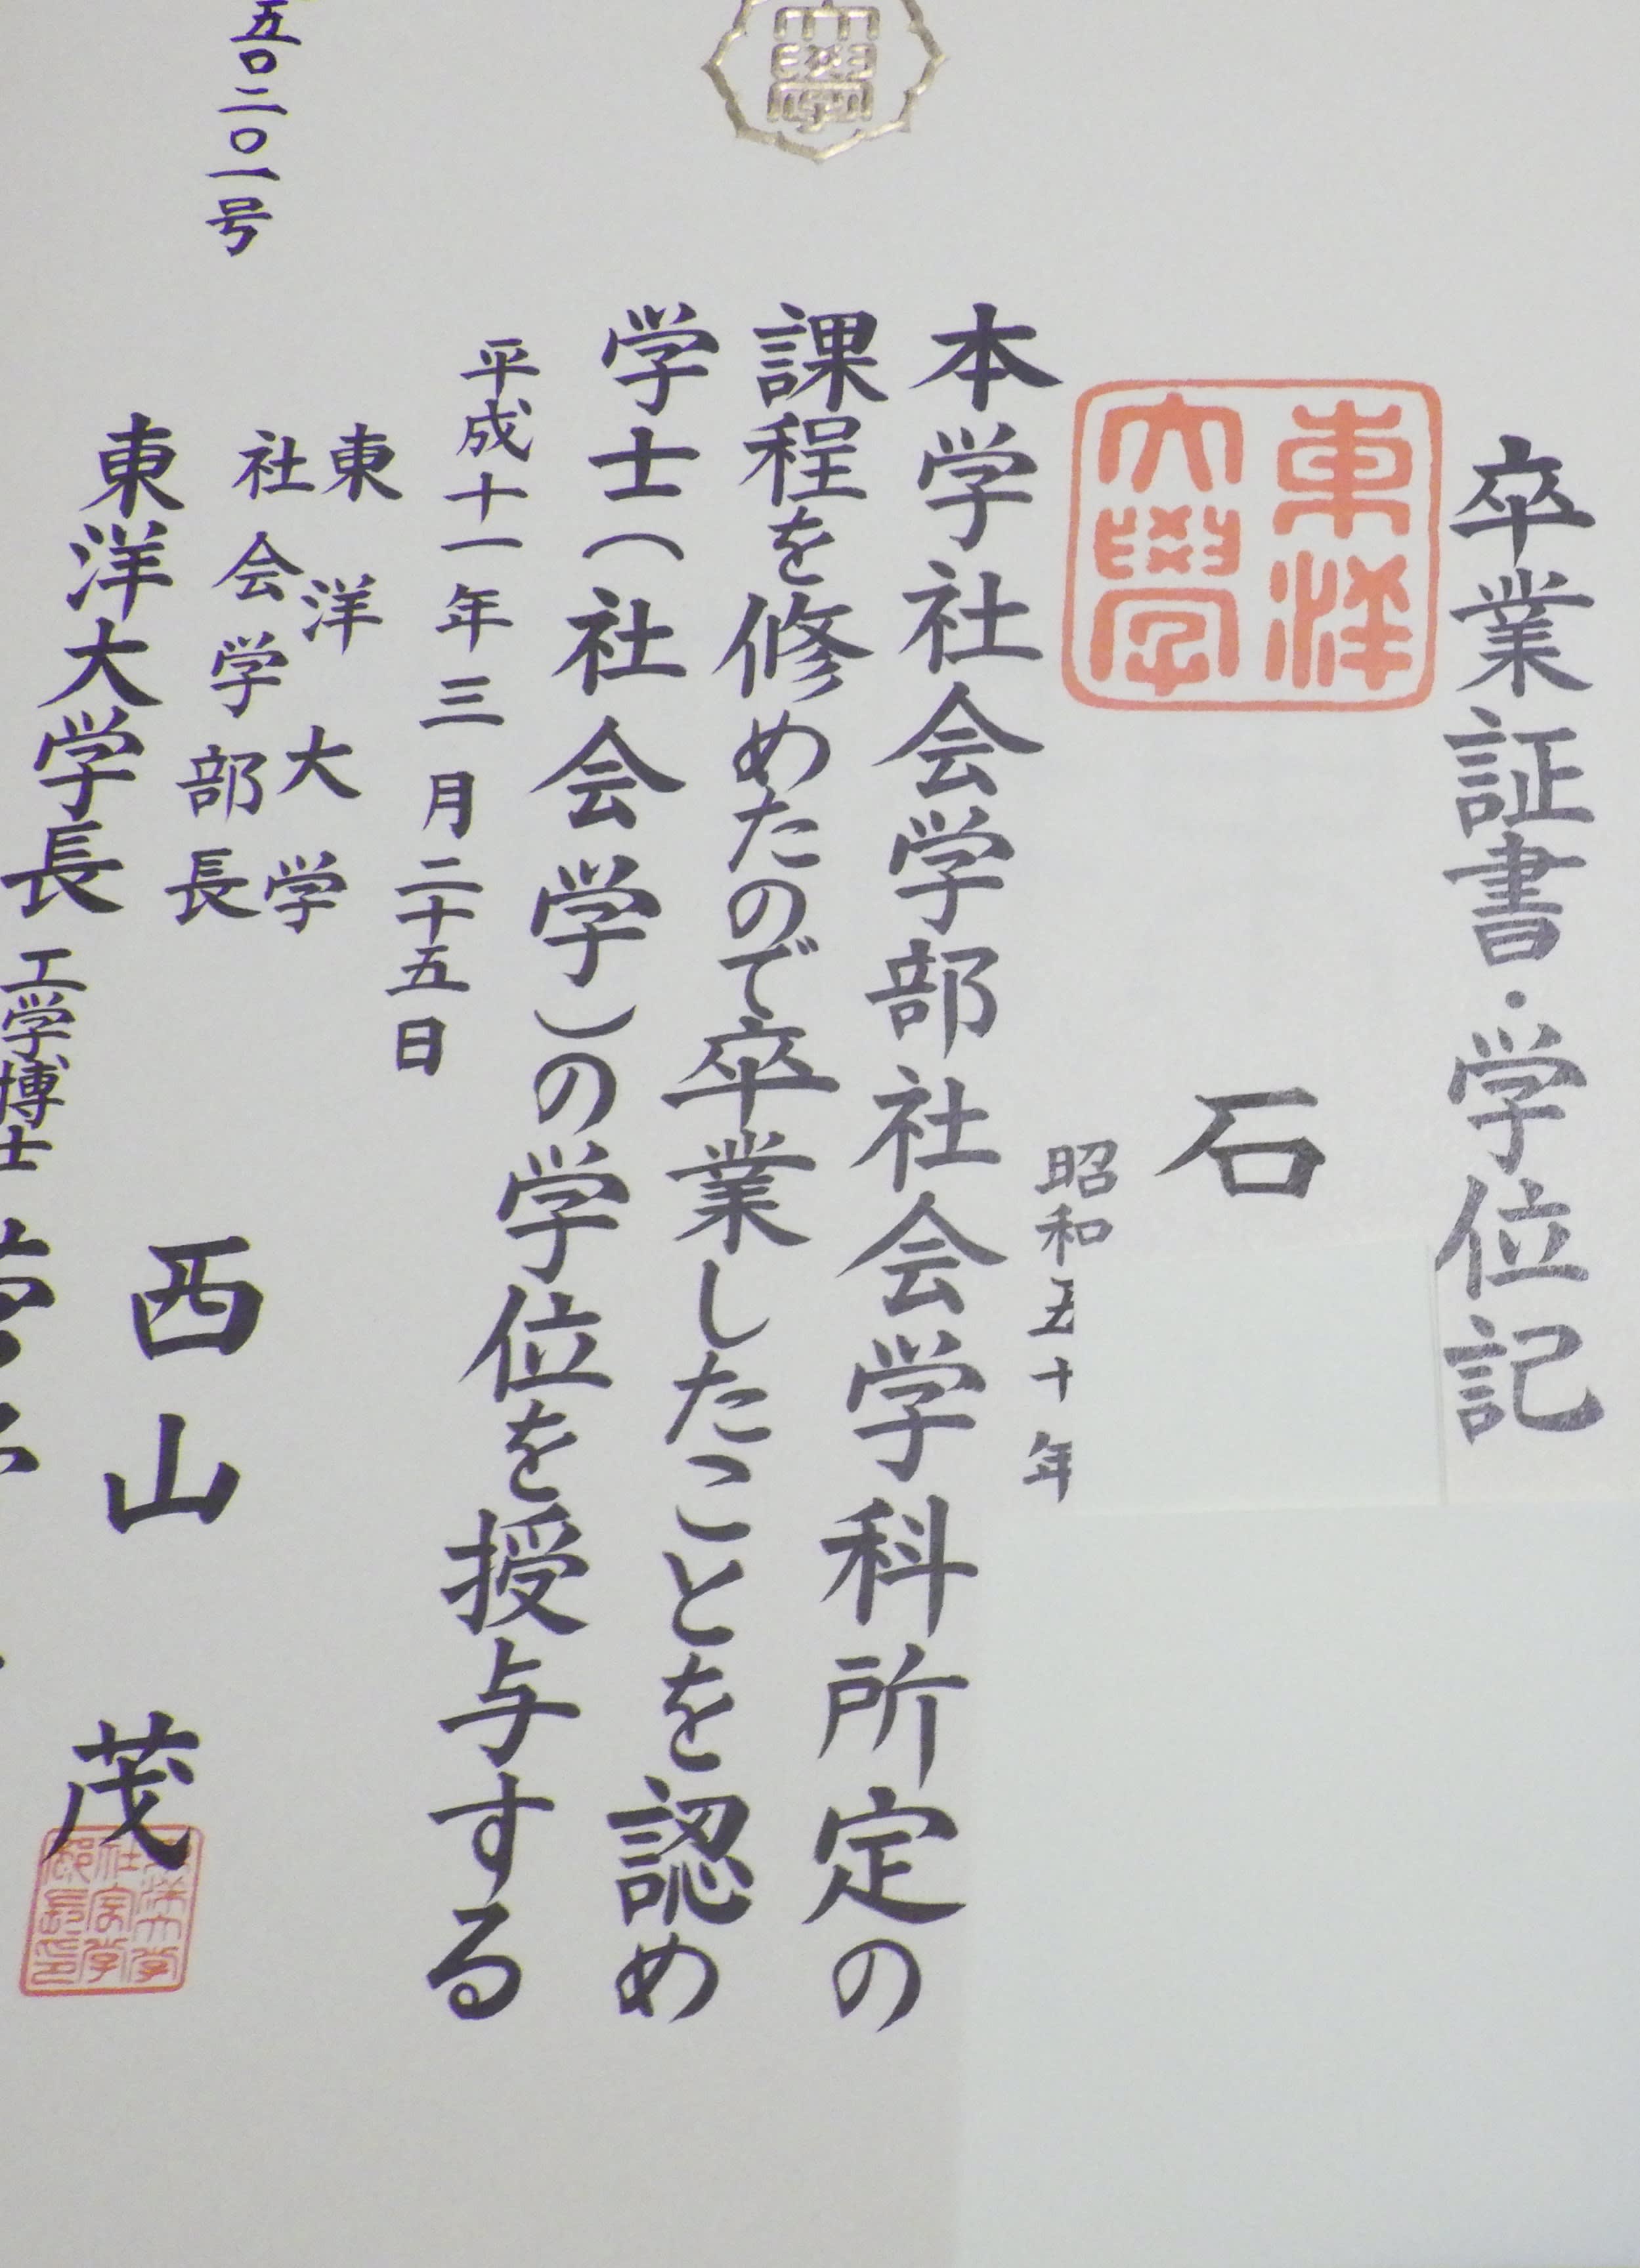 卒業証書・学位記
東洋大學
石
昭和五十年
本学社会学部社会学科所定の
課程を修めたので卒業したことを認め
学士(社会学)の学位を授与する
平成十一年三月二十五日
東洋大学
社会学部長
西山茂
東洋大学長
工学博士
五〇二〇一号
大學